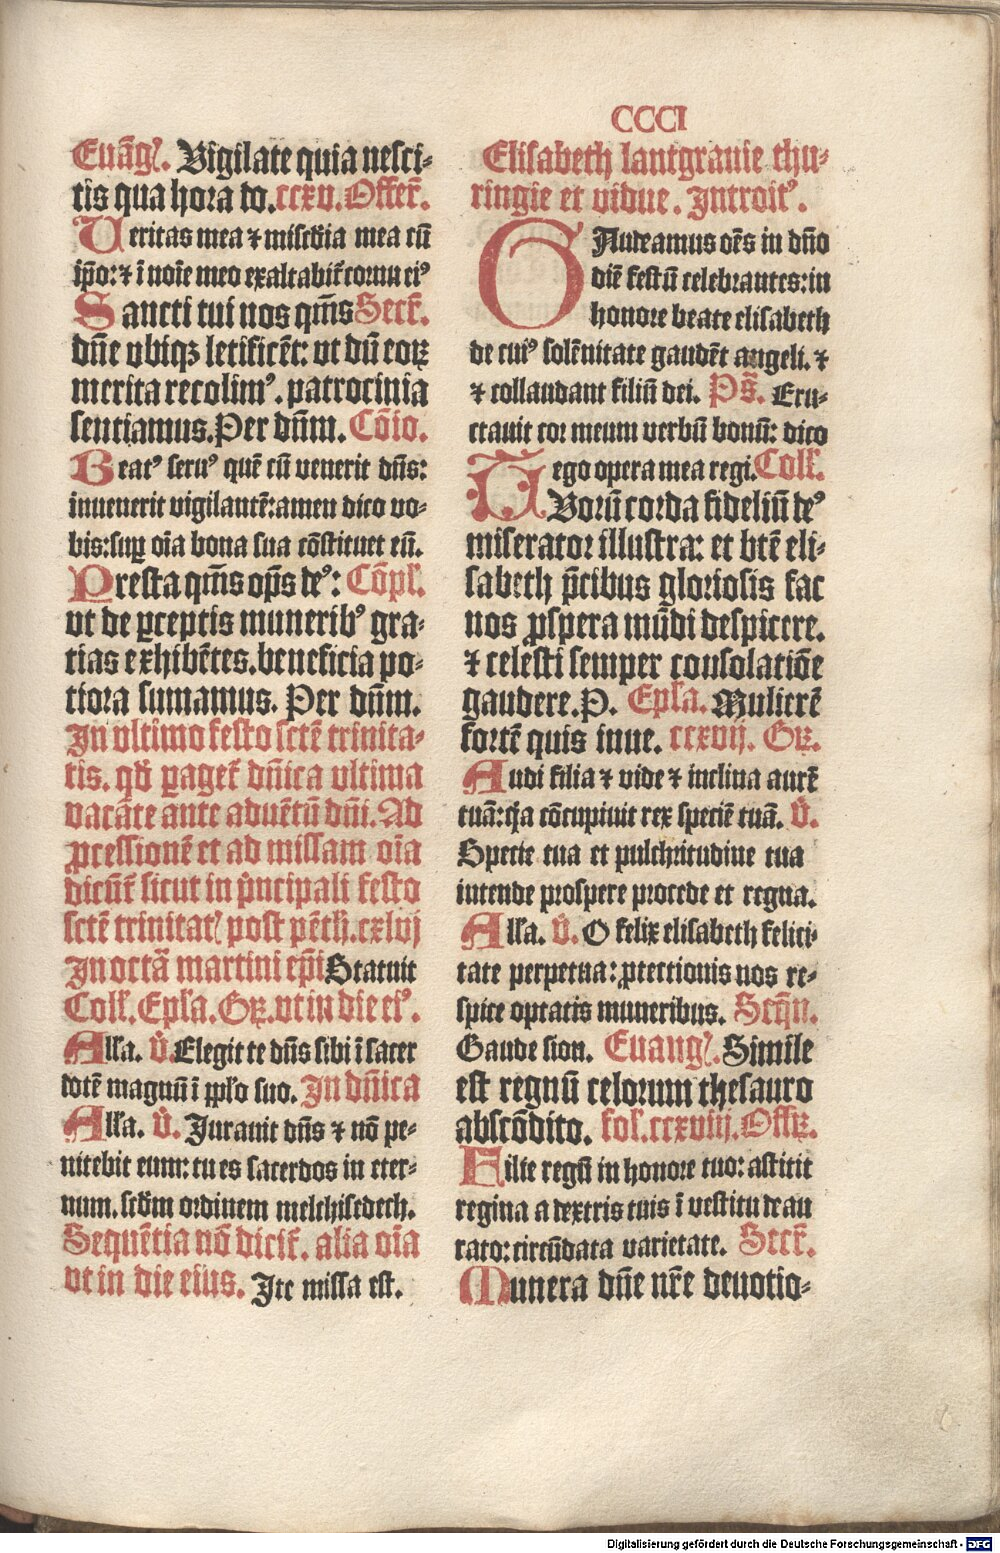 CCCI
Euãgꝭ. Vigilate quia nesci-
tis qua hora do. ccxv. Offer̃.
Veritas mea ⁊ miscd̃ia mea cũ
ip̃o: ⁊ ĩ noĩe meo exaltabit̃ cornu eiꝰ
Sancti tui nos qm̃s Secr̃.
dñe vbiqꝫ letificẽt: vt dũ eoꝝ
merita recolimꝰ. patrocinia
sentiamus. Per dñm. Cõio.
Beatꝰ seruꝰ quẽ cũ venerit dñs:
inuenerit vigilantẽ: amen dico vo-
bis: suꝑ oĩa bona sua cõstituet eũ.
Presta qm̃s op̃s deꝰ: Cõpl̃.
vt de ꝑceptis muneribꝰ gra-
tias exhibẽtes. beneficia po-
tiora sumamus. Per dñm.
In vltimo festo sctẽ trinita-
tis. qd̃ ꝑaget̃ dñica vltima
vacãte ante aduẽtũ dñi. Ad
ꝓcessionẽ et ad missam oĩa
dicũt̃ sicut in p̃ncipali festo
sctẽ trinitatꝭ post pẽth. cxlvj
In octã martini ep̃i Statuit
Coll̃. Epl̃a. Gꝝ. vt in die eiꝰ.
All̃a. v̊. Elegit te dñs sibi ĩ sacer
dotẽ magnũ ĩ pp̃lo suo. In dñica
All̃a. v̊. Iurauit dñs ⁊ nõ pe-
nitebit eum: tu es sacerdos in eter-
num. scd̃m ordinem melchisedech.
Sequẽtia nõ dicit̃. alia oĩa
vt in die eius. Ite missa est.
Elisabeth lantgrauie thu-
ringie et vidue. Introitꝰ.
GAudeamus oẽs in dño
diẽ festũ celebrantes: in
honore beate elisabeth
de cuiꝰ solẽnitate gaudẽt angeli. ⁊
⁊ collaudant filiũ dei. Ps̃. Eru-
ctauit cor meum verbũ bonũ: dico
ego opera mea regi. Coll̃.
TVorũ corda fideliũ deꝰ
miserator illustra: et btẽ eli-
sabeth p̃cibus gloriosis fac
nos ꝓspera mũdi despicere.
⁊ celesti semper consolatiõe
gaudere. P. Epl̃a. Mulierẽ
fortẽ quis inue. ccxvij. Gꝝ.
Audi filia ⁊ vide ⁊ inclina aurẽ
tuã: q̃a cõcupiuit rex speciẽ tuã. v̊.
Specie tua et pulchritudine tua
intende prospere procede et regna.
All̃a. v̊. O felix elisabeth felici-
tate perpetua: ꝓtectionis nos re-
spice optatis muneribus. Seq̃n.
Gaude sion. Euangꝭ. Simile
est regnũ celorum thesauro
abscõdito. fol̃. ccxviij. Offꝝ.
Filie regũ in honore tuo: astitit
regina a dextris tuis ĩ vestitu deau
rato: circũdata varietate. Secr̃.
Munera dñe nr̃e deuotio-
Digitalisierung gefördert durch die Deutsche Forschungsgemeinschaft - DFG